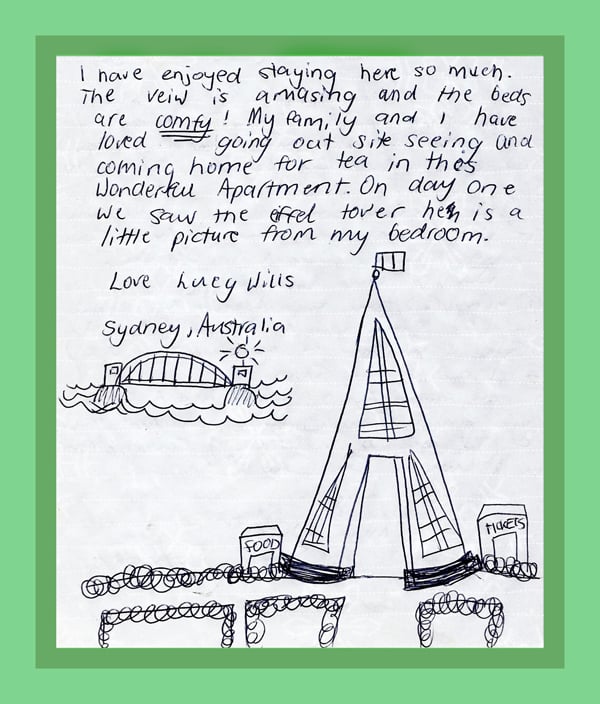 I have enjoyed staying here so much.
The veiw is amasing and the beds
are comfy! My family and I have
loved going out site seeing and
coming home for tea in this
Wonderful Apartment. On day one
we saw the effel tover is a
little picture from my bedroom.
Love Lucy Wills
Sydney, Australia
FOOD
TICKETS